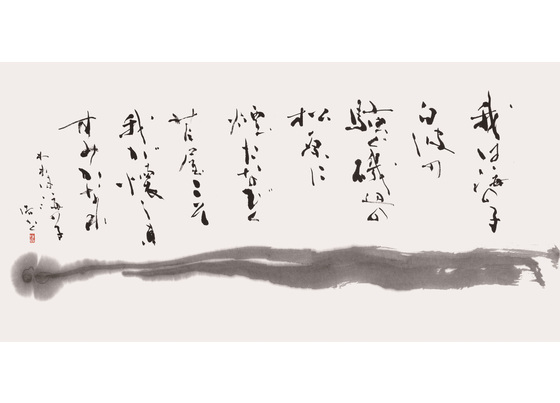 我は海の子
白波の
騒ぐ磯辺の
松原に
煙たなびく
苫屋こそ
我が懐しき
すみかなれ
われは海の子